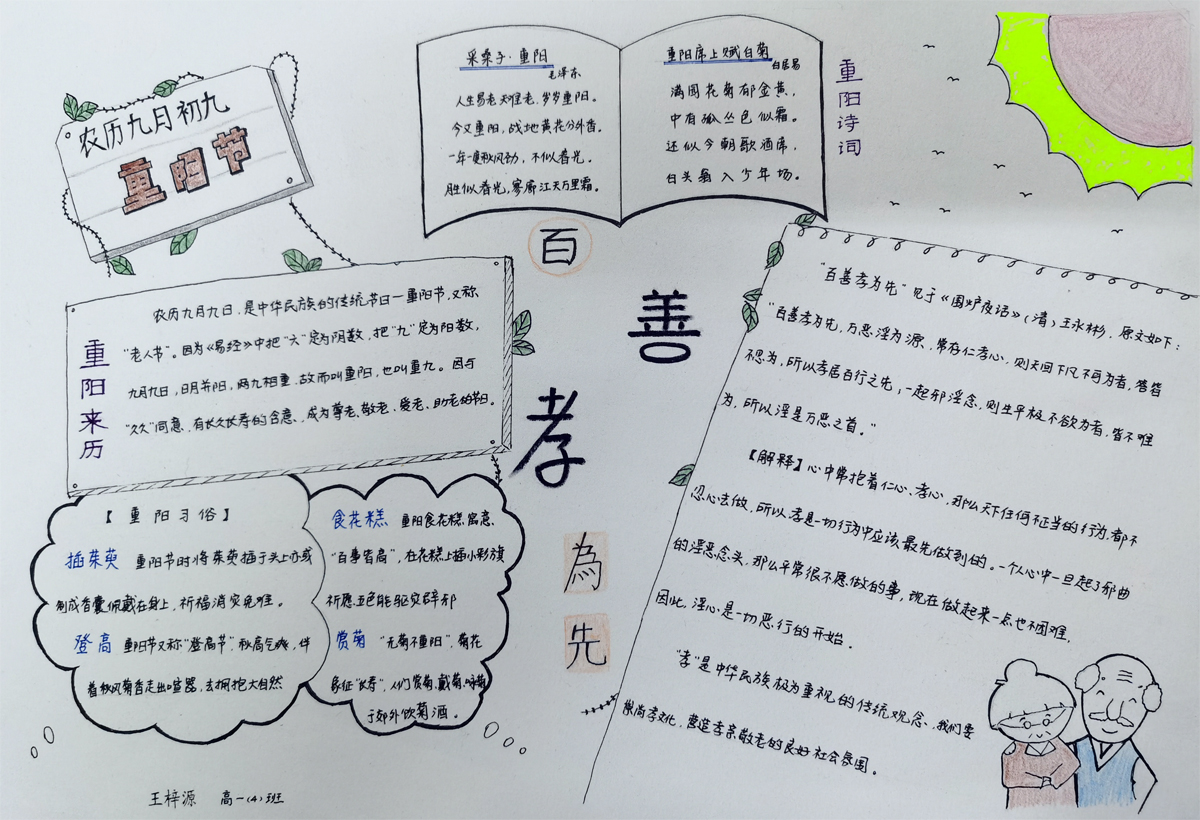 农历九月初九
重阳节
采桑子·重阳
毛泽东
人生易老天难老，岁岁重阳。
今又重阳，战地黄花分外香。
一年一度秋风劲，不似春光。
胜似春光，寥廓江天万里霜。
重阳席上赋白菊
白居易
满园花菊郁金黄，
中有孤丛色似霜。
还似今朝歌酒席，
白头翁入少年场。
重阳诗词
重阳来历
农历九月九日，是中华民族的传统节日—重阳节，又称
“老人节”。因为《易经》中把“六”定为阴数，把“九”定为阳数，
九月九日，日月并阳，两九相重，故而叫重阳，也叫重九。因与
“久久”同意，有长久长寿的含意，成为尊老、敬老、爱老、助老的节日。
【重阳习俗】
插茱萸 重阳节时将茱萸插于头上亦或
制成香囊佩戴在身上，祈福消灾免难。
登高 重阳节又称“登高节”，秋高气爽，伴
着秋风菊香走出喧嚣，去拥抱大自然
食花糕 重阳食花糕，寓意、
“百事皆高”，在花糕上插小彩旗
祈愿五色能驱灾辟邪
赏菊 “无菊不重阳”，菊花
象征“长寿”，人们赏菊、戴菊、咏菊
于郊外饮菊酒。
百
善
孝
為
先
“百善孝为先”见于《围炉夜话》（清）王永彬，原文如下：
“百善孝为先，万恶淫为源，常存仁孝心，则天下凡不可为者，皆
不思为，所以孝居百行之先；一起邪淫念，则生平极不欲为者，皆不难
为，所以淫是万恶之首。”
【解释】心中常抱着仁心、孝心，那么天下任何不正当的行为，都不
忍心去做，所以，孝是一切行为中应该最先做到的。一个人心中一旦起了邪曲
的淫恶念头，那么平常很不愿做的事，现在做起来一点也不困难，
因此，淫心是一切恶行的开始。
“孝”是中华民族极为重视的传统观念，我们要
崇尚孝文化，营造孝亲敬老的良好社会氛围。
王梓源 高一（4）班